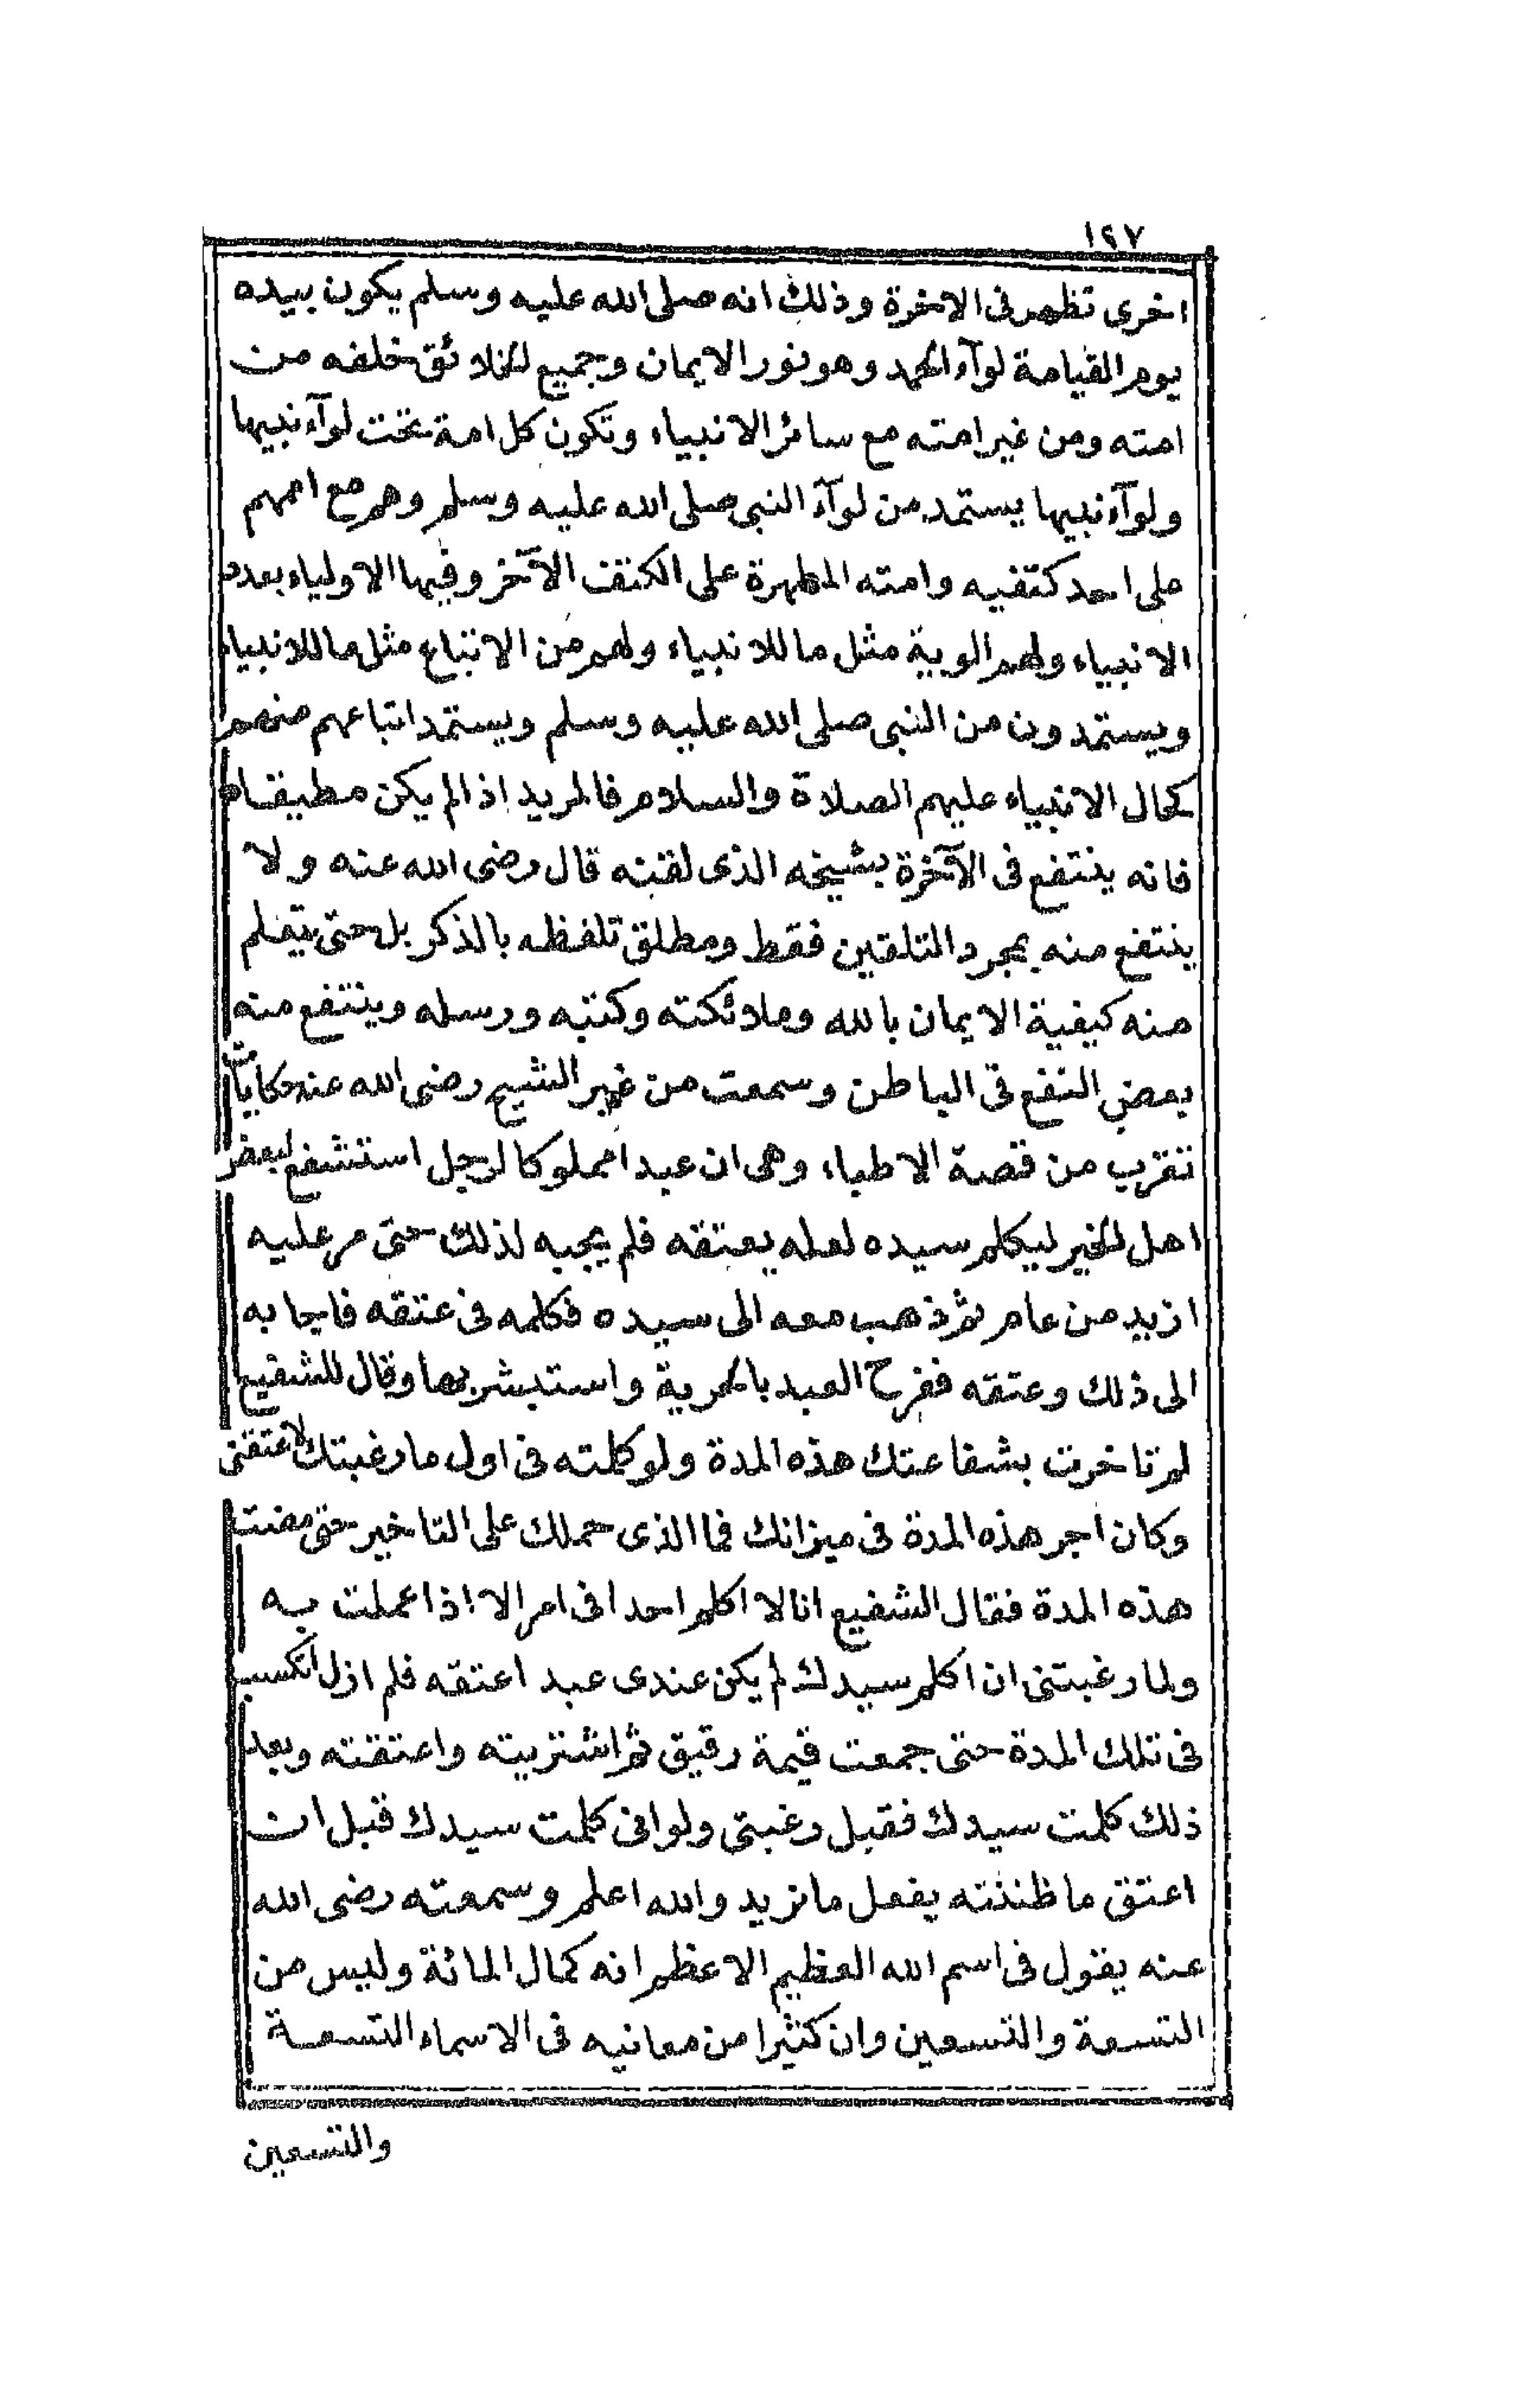 ١٩٧
اخرى تظهر فى الاخرة وذلك انه صلى الله عليه وسلم يكون بيده
يوم القيامة لوآء الحمد وهو نور الايمان وجميع الخلائق خلفه من
امته ومن غير امته مع سائر الانبياء وتكون كل امة تحت لوآء نبيها
ولوآء نبيها يستمد من لوآء النبى صلى الله عليه وسلم وهم مع اممهم
على احد كتفيه وامته المطهرة على الكتف الآخر وفيها الاولياء بعدد
الانبياء ولهم الوية مثل ما للانبياء ولهم من الاتباع مثل ما للانبياء
ويستمدون من النبى صلى الله عليه وسلم ويستمد اتباعهم منهم
كحال الانبياء عليهم الصلاة والسلام فالمريد اذا لم يكن مطيقا
فانه ينتفع فى الآخرة بشيخه الذى لقنه قال رضى الله عنه ولا
ينتفع منه بمجرد التلقين فقط ومطلق تلفظه بالذكر بل حتى يتعلم
منه كيفية الايمان بالله وملائكته وكتبه ورسله وينتفع منه
بعض النفع فى الباطن وسمعت من غير الشيخ رضى الله عنه حكايات
تقرب من قصة الاطباء وهى ان عبدا مملوكا لرجل استشفع لبعض
اهل الخير ليكلم سيده لعله يعتقه فلم يجبه لذلك حتى مر عليه
ازيد من عام ثم ذهب معه الى سيده فكلمه فى عتقه فاجابه
الى ذلك وعتقه ففرح العبد بالحرية واستبشر بها وقال للشفيع
لم تاخرت بشفاعتك هذه المدة ولو كلمته فى اول ما رغبتك لاعتقنى
وكان اجر هذه المدة فى ميزانك فما الذى حملك على التاخير حتى مضت
هذه المدة فقال الشفيع انا لا اكلم احدا فى امر الا اذا عملت به
ولما رغبتنى ان اكلم سيدك لم يكن عندى عبد اعتقه فلم ازل اتكسب
فى تلك المدة حتى جمعت قيمة رقيق ثم اشتريته واعتقته وبعد
ذلك كلمت سيدك فقبل رغبتى ولو انى كلمت سيدك قبل ان
اعتق ما ظننته يفعل ما نريد والله اعلم وسمعته رضى الله
عنه يقول فى اسم الله العظيم الاعظم انه كمال المائة وليس من
التسعة والتسعين وان كثيرا من معانيه فى الاسماء التسعة
والتسعين